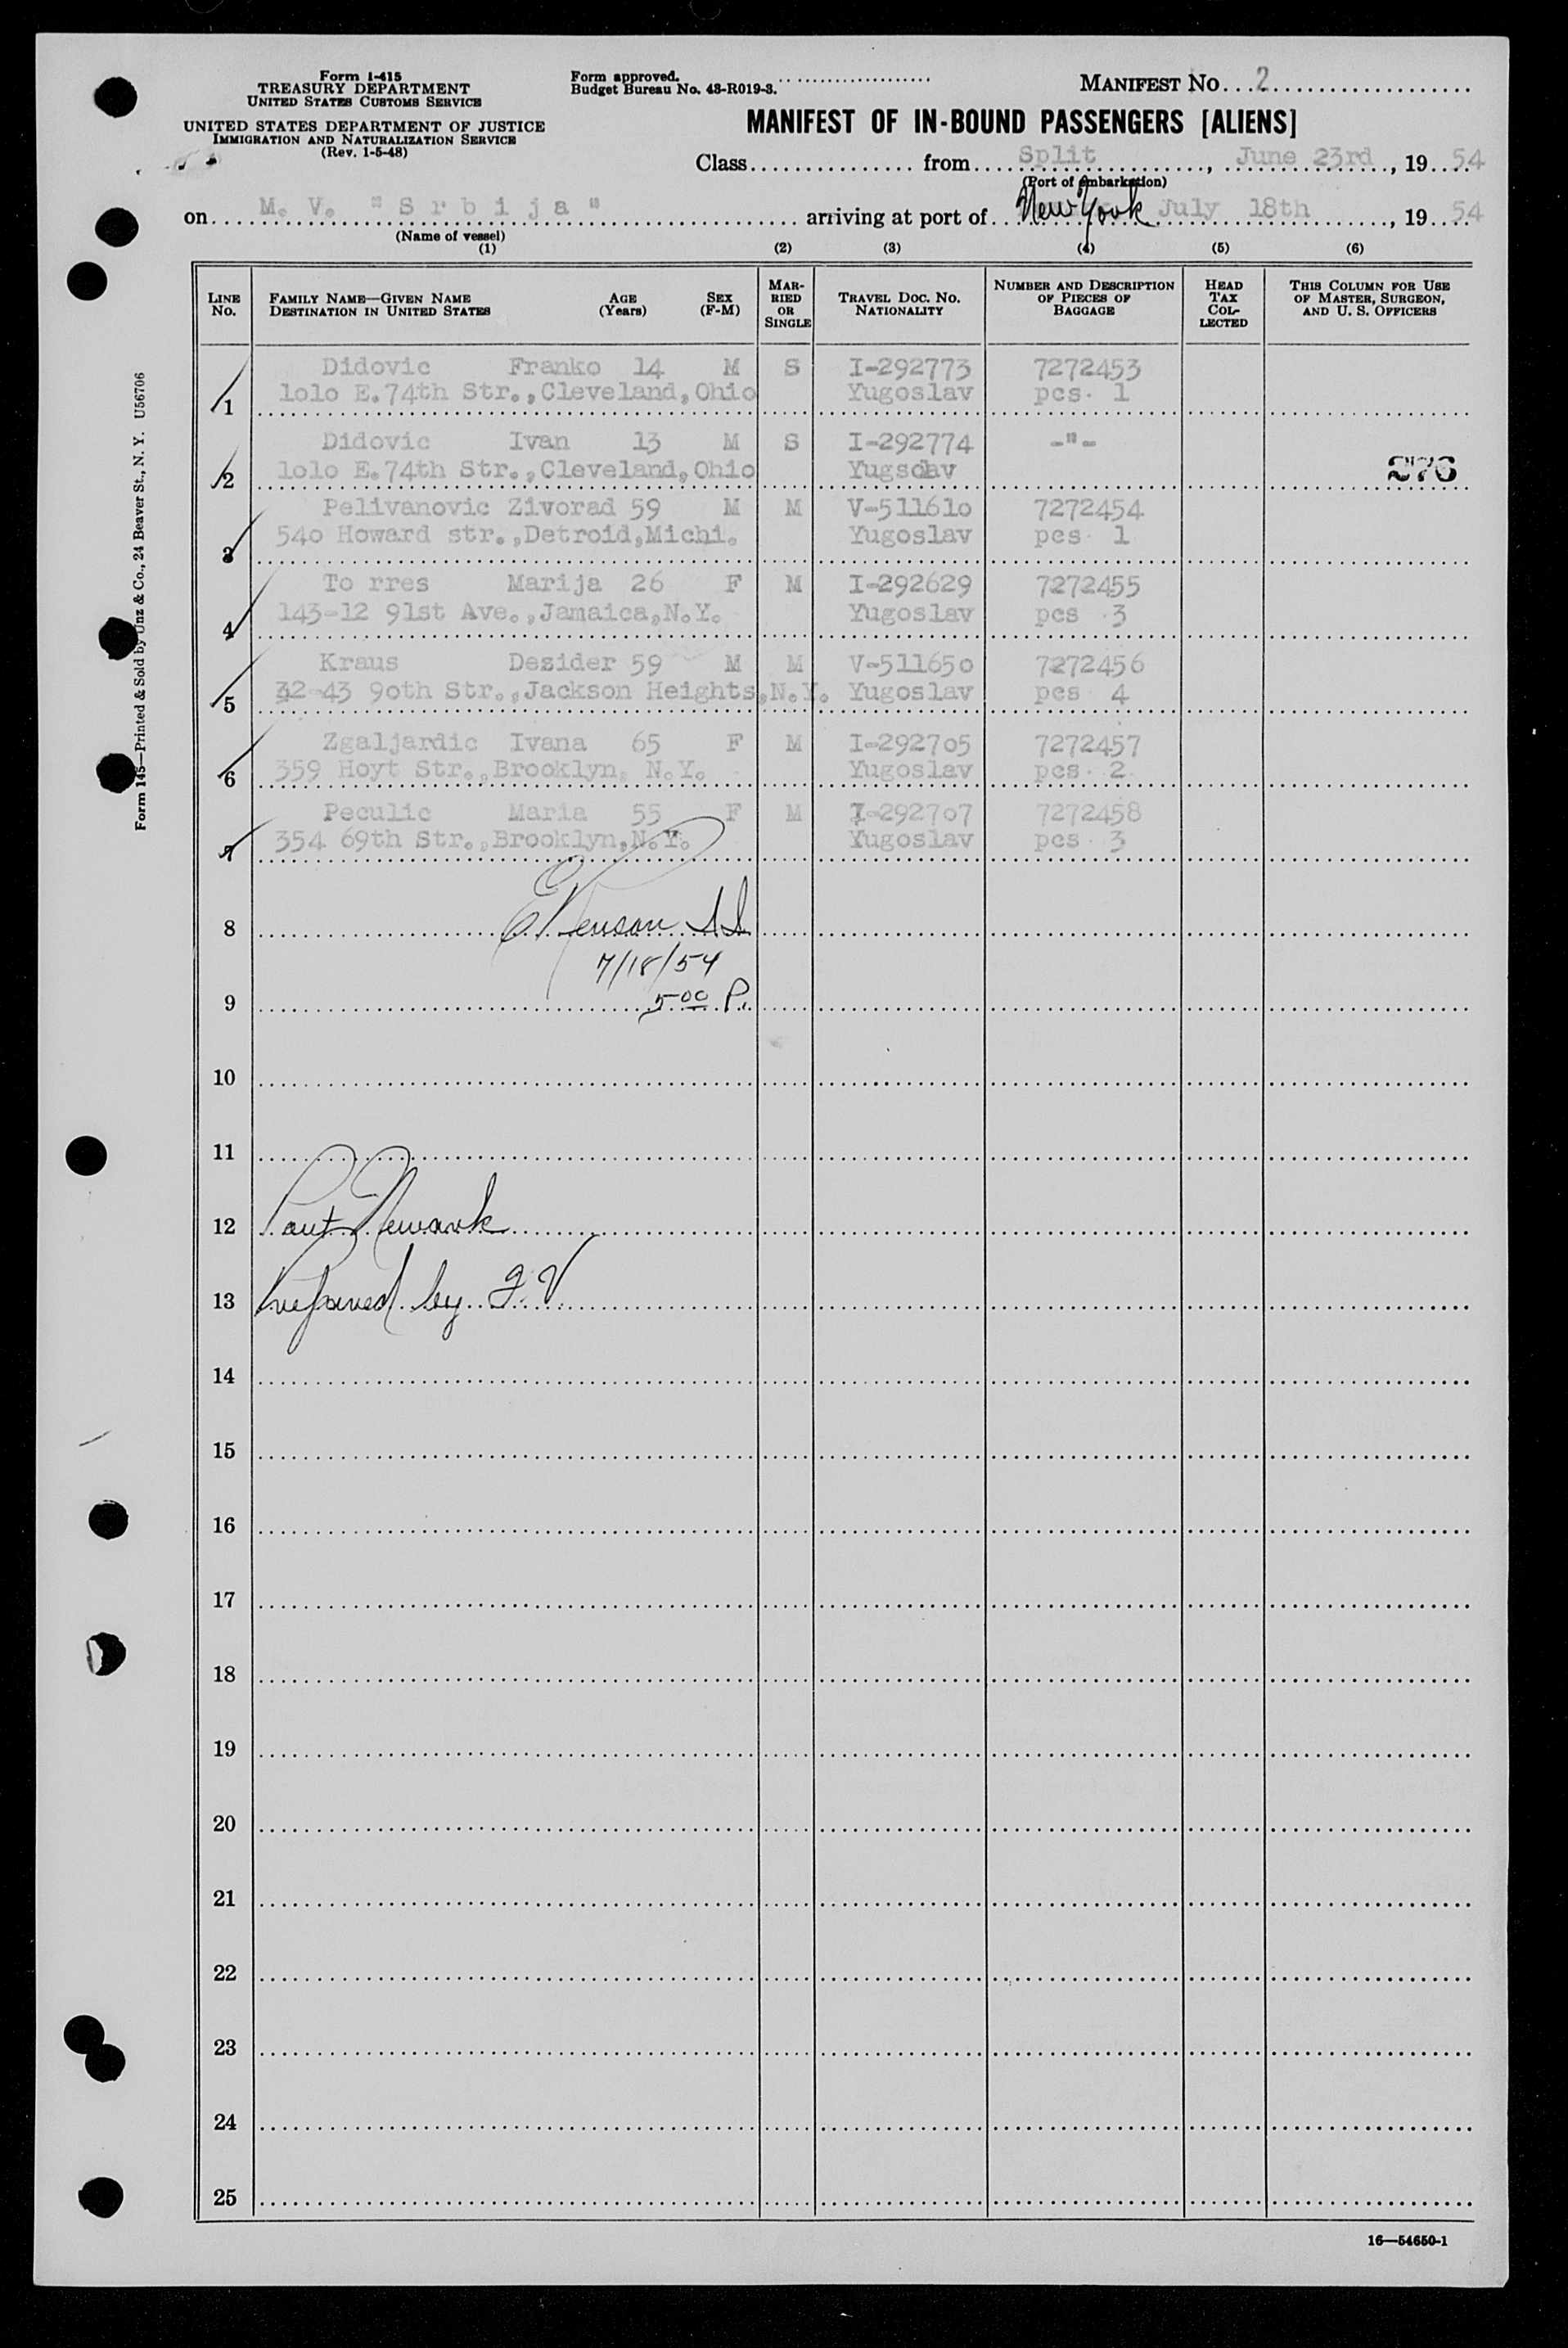 Form I-415
TREASURY DEPARTMENT
UNITED STATES CUSTOMS SERVICE
UNITED STATES DEPARTMENT OF JUSTICE
IMMIGRATION AND NATURALIZATION SERVICE
(Rev. 1-5-48)
Form approved.
Budget Bureau No. 43-R019-3.
MANIFEST NO. 2
MANIFEST OF IN-BOUND PASSENGERS [ALIENS]
Class from Split, June 23rd, 1954
(Port of embarkation)
on M. V. "Srbija" arriving at port of New York July 18th, 1954
(Name of vessel)
(1) (2) (3) (4) (5) (6)
LINE NO. FAMILY NAME—GIVEN NAME DESTINATION IN UNITED STATES AGE (Years) SEX (F-M) MARRIED OR SINGLE TRAVEL DOC. NO. NATIONALITY NUMBER AND DESCRIPTION OF PIECES OF BAGGAGE HEAD TAX COLLECTED THIS COLUMN FOR USE OF MASTER, SURGEON, AND U. S. OFFICERS
Didovic Franko 14 M S I-292773 7272453
1 1olo E.74th Str.,Cleveland,Ohio Yugoslav pcs. 1
Didovic Ivan 13 M S I-292774 -"-
2 1olo E.74th Str.,Cleveland,Ohio Yugsolav 276
Pelivanovic Zivorad 59 M M V-51161o 7272454
3 54o Howard str.,Detroid,Michi. Yugoslav pcs 1
To rres Marija 26 F M I-292629 7272455
4 143-12 91st Ave.,Jamaica,N.Y. Yugoslav pcs 3
Kraus Dezider 59 M M V-51165o 7272456
5 32-43 9oth Str.,Jackson Heights,N.Y. Yugoslav pcs 4
Zgaljardic Ivana 65 F M I-2927o5 7272457
6 359 Hoyt Str.,Brooklyn, N.Y. Yugoslav pcs. 2
Peculic Maria 55 F M I-2927o7 7272458
7 354 69th Str.,Brooklyn,N.Y. Yugoslav pcs. 3
8
7/18/54
9 5 00 P.
10
11
12 Port Newark
13 Prepared by
14
15
16
17
18
19
20
21
22
23
24
25
16—54650-1
Form 145—Printed & Sold by Unz & Co., 24 Beaver St., N. Y. U56706